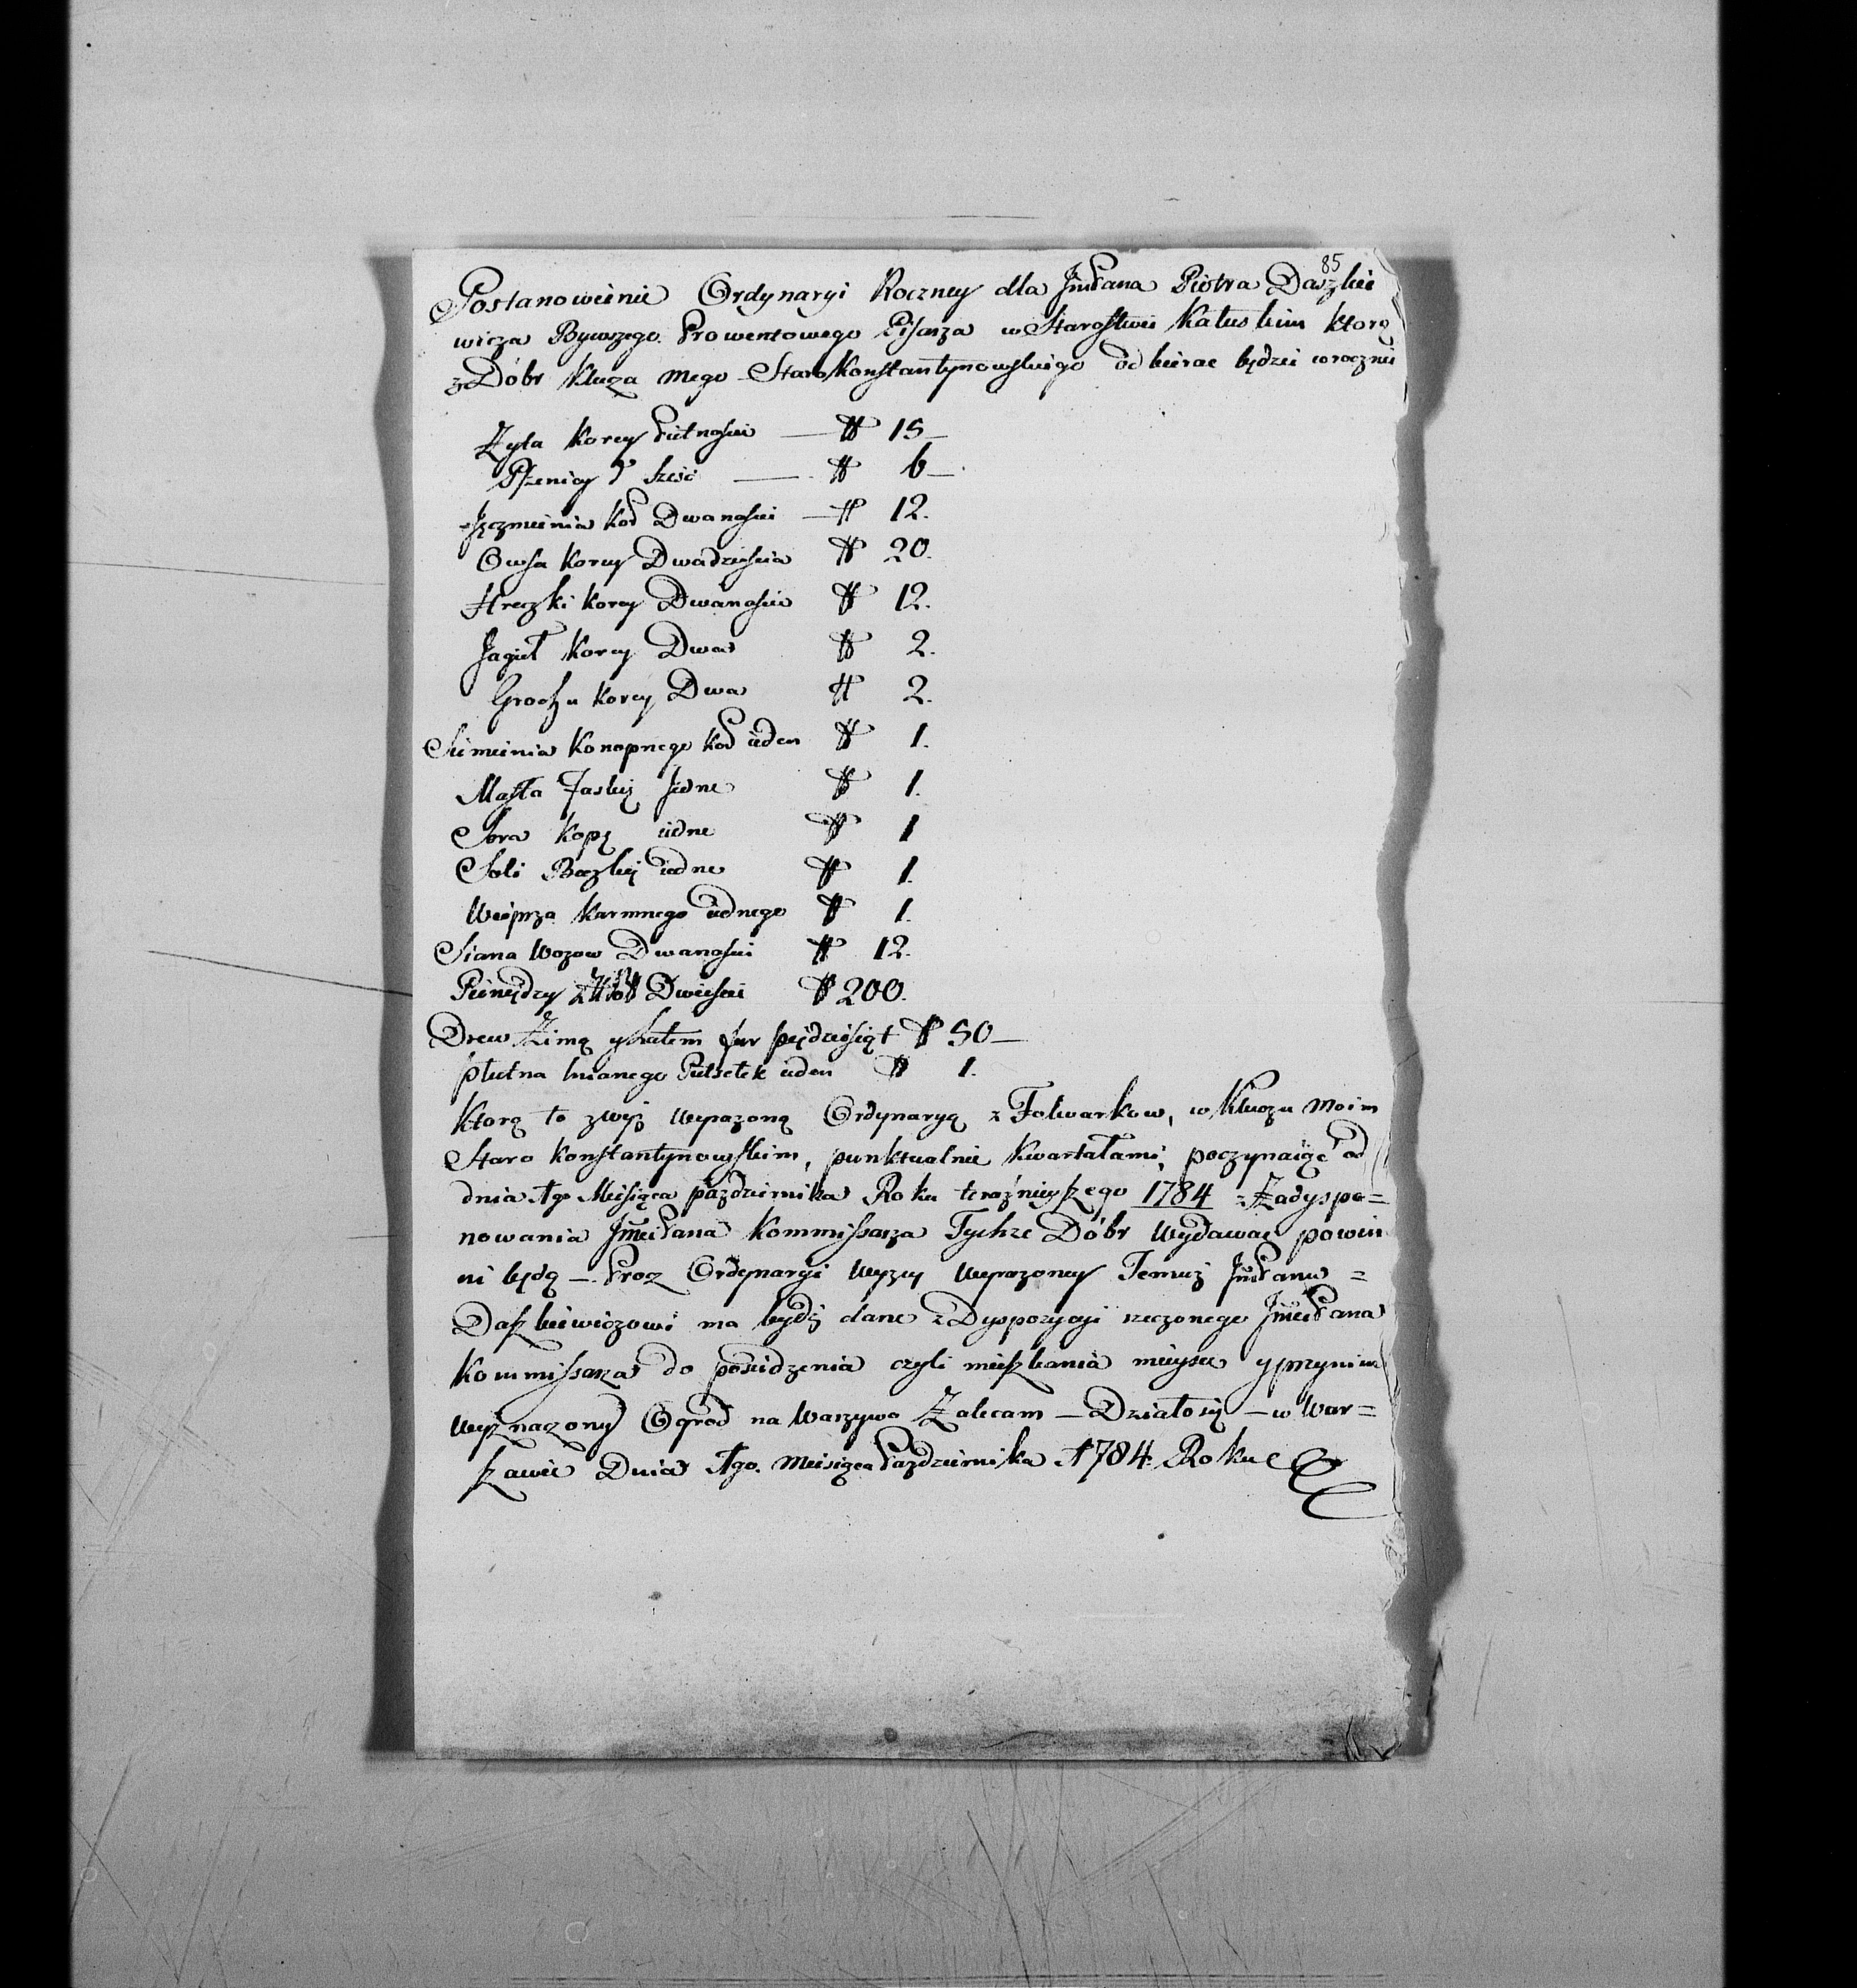 85
Postanowienie Ordynaryi Roczney dla JmPana Piotra Daszkie
wicza Bywszego Prowentowego Pisarza w Starostwie Kałuskim ktorą
z Dóbr Klucza mego Staro Konstantynowskiego odbierac będzie corocznie
Zyta Korcy Pietnaście — # 15 —
Pszenicy d° sześć — # 6 —
Jęczmienia Kor Dwanaście — # 12.
Owsa Korcy Dwadzieścia # 20.
Hreczki korcy Dwanaście # 12.
Jagieł Korcy Dwa # 2.
Grochu Korcy Dwa # 2.
Siemienia Konopnego Kor ieden # 1.
Masła Faskę Jedne # 1.
Sera Kopę iedne # 1
Soli Beczkę iedne # 1.
Wieprza Karmnego iednego # 1.
Siana Wozow Dwanaście # 12.
Pieniędzy Dwieście # 200.
Drew Zimą y Latem fur piędziesiąt # 50 —
płutna lnianego Pułsetek ieden # 1.
Ktorą to zwyż wyrazoną Ordynaryą z Folwarkow, w Kluczu Moim
Staro Konstantynowskim, punktualnie Kwartałami, poczynaiąć od
dnia 1go Miesiąca pazdziernika Roku teraźnieyszego 1784 z Zadyspo=
nowania JmciPana Kommissarza Tychze Dóbr Wydawac powin
ni będą —. Procz Ordynaryi Wyzey Wyrazoney Temuż JmPanu =
Daszkiewiczowi ma bydź dane z Dyspozycyi rzeczonego JmciPana
Kommissarza do posiedzenia czyli mieszkania mieysce y przy nim
wyznaczony Ogrod na Warzywo Zalecam — Działo się — w War=
szawie Dnia 1go. Miesiąca Pazdziernika 1784. Roku